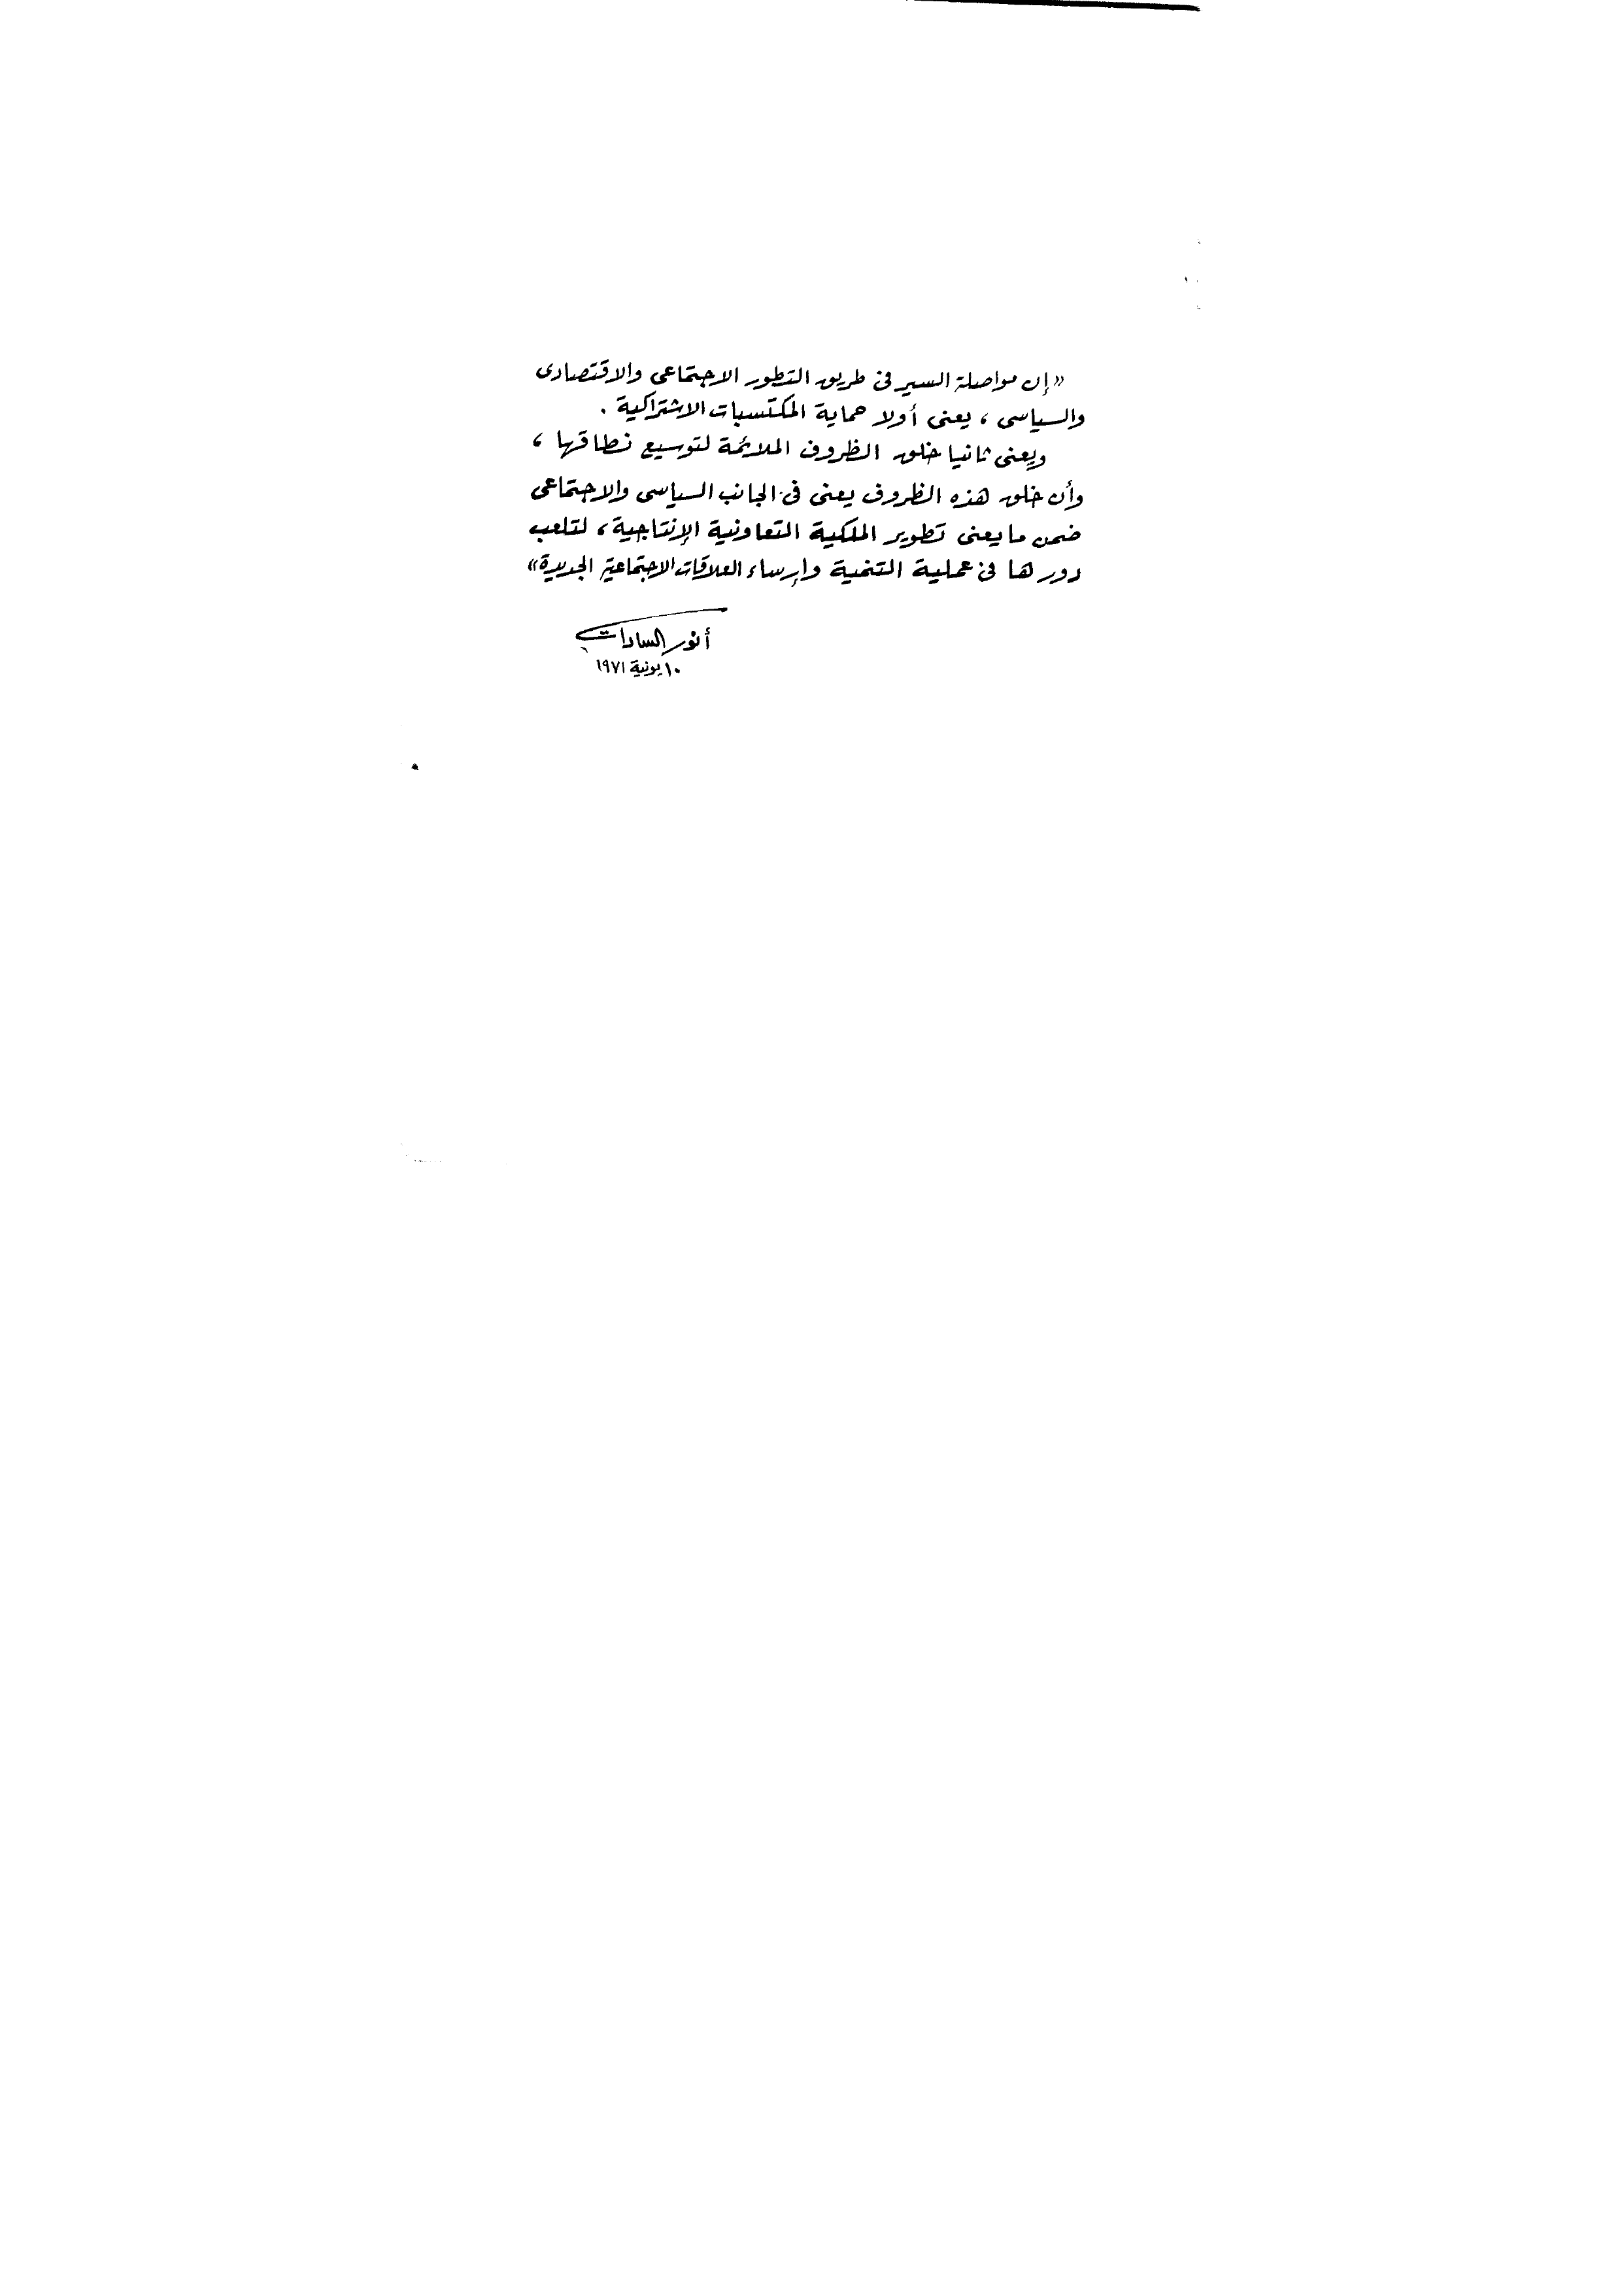 «إن مواصلة السير فى طريق التطور الاجتماعى والاقتصادى
والسياسى ، يعنى أولا حماية المكتسبات الاشتراكية .
ويعنى ثانيا خلق الظروف الملائمة لتوسيع نطاقها ،
وأن خلق هذه الظروف يعنى فى الجانب السياسى والاجتماعى
ضمن ما يعنى تطوير الملكية التعاونية الإنتاجية ، لتلعب
دورها فى عملية التنمية وإرساء العلاقات الاجتماعية الجديدة»
أنور السادات
١٠ يونية ١٩٧١